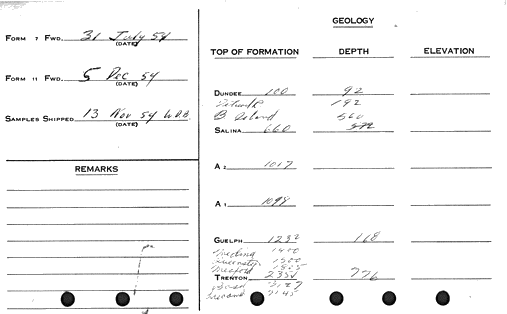 FORM 7 FWD. 31 July 54
(DATE)
FORM 11 FWD. 5 Dec 54
(DATE)
SAMPLES SHIPPED 13 Nov 54 W.D.B.
(DATE)
REMARKS
GEOLOGY
TOP OF FORMATION DEPTH ELEVATION
DUNDEE 100 92
Detroit 192
B. Island 560
SALINA 660 572
A 2 1017
A 1 1098
GUELPH 1232 168
Medina 1400
Queenston
Meaford
TRENTON 2351 776